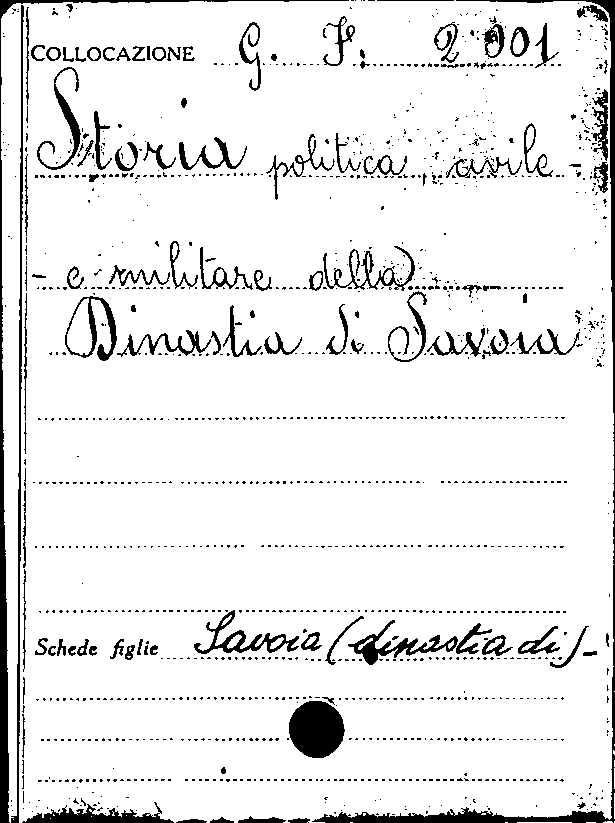 COLLOCAZIONE G. F. 2001
Storia politica, civile -
- e militare della
Dinastia di Savoia
Schede figlie Savoia (dinastia di) -